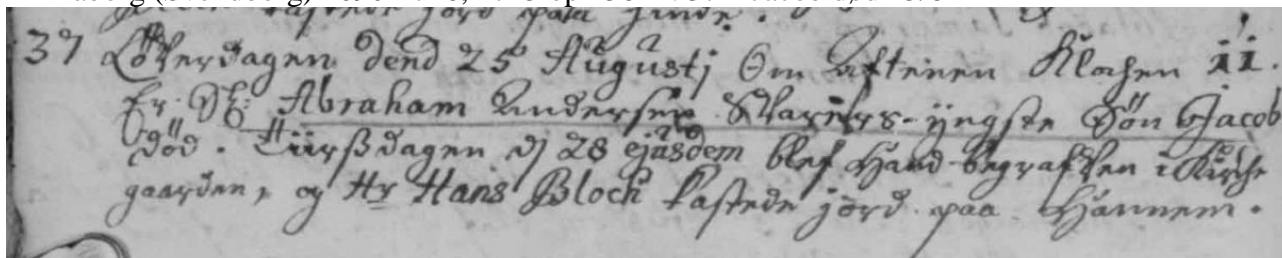 kastede jord paa hende.
37 Løverdagen dend 25 Augustj Om Aftenen Klochen 11.
Er Sl: Abraham Andersen yngste Søn Jacob
død. Tiirsdagen dj 28 ejusdem blef Hand begrafven i Kirche
gaarden, og Hr Hans Bloch kastede jord paa Hannem.